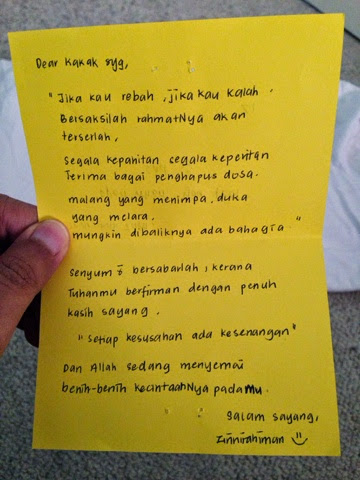 Dear Kakak syg,
"Jika kau rebah, jika kau kalah
Bersaksilah rahmatNya akan
terserlah,
Segala kepahitan segala keperitan
Terima bagai penghapus dosa.
malang yang menimpa, duka
yang melara.
mungkin dibaliknya ada bahagia"
Senyum & bersabarlah, kerana
Tuhanmu berfirman dengan penuh
kasih sayang.
"Setiap kesusahan ada kesenangan"
Dan Allah sedang menyemai
benih-benih kecintaahNya padamu.
Salam sayang,